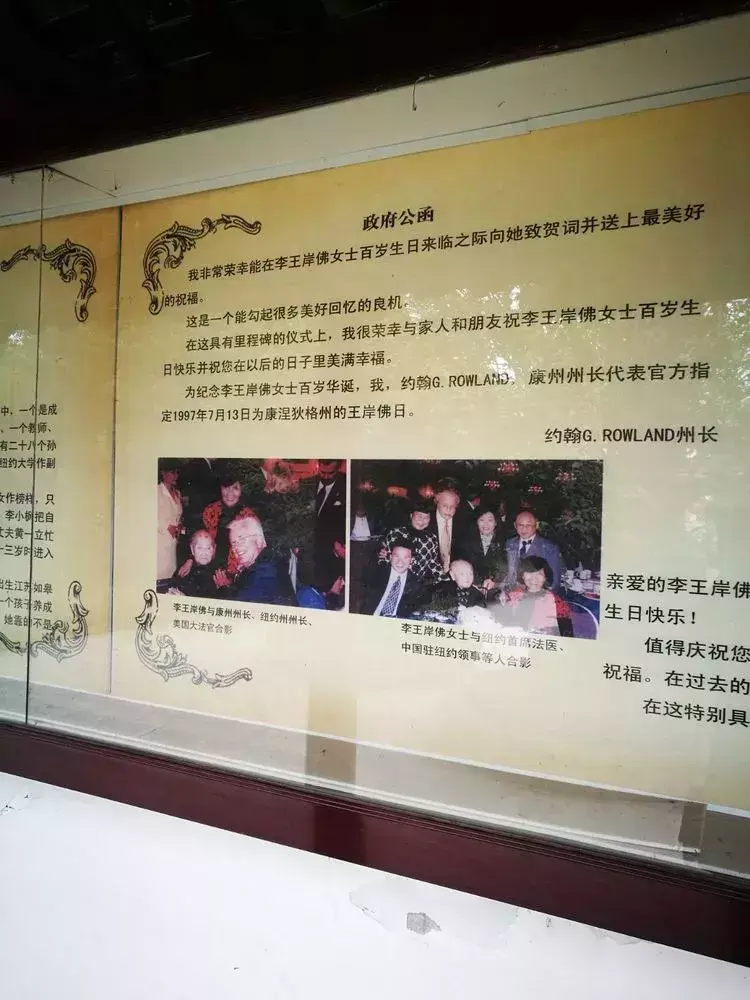 中，一个是成
、一个教师、
有二十八个孙
纽约大学作副
女作榜样，只
李小枫把自
丈夫黄一立忙
十三岁时进入
出生江苏如皋
一个孩子养成
她靠的不是
政府公函
我非常荣幸能在李王岸佛女士百岁生日来临之际向她致贺词并送上最美好
的祝福。
这是一个能勾起很多美好回忆的良机。
在这具有里程碑的仪式上，我很荣幸与家人和朋友祝李王岸佛女士百岁生
日快乐并祝您在以后的日子里美满幸福。
为纪念李王岸佛女士百岁华诞，我，约翰G.ROWLAND，康州州长代表官方指
定1997年7月13日为康涅狄格州的王岸佛日。
约翰G.ROWLAND州长
李王岸佛与康州州长、纽约州州长、
美国大法官合影
李王岸佛女士与纽约首席法医、
中国驻纽约领事等人合影
亲爱的李王岸佛
生日快乐！
值得庆祝您
祝福。在过去的
在这特别具